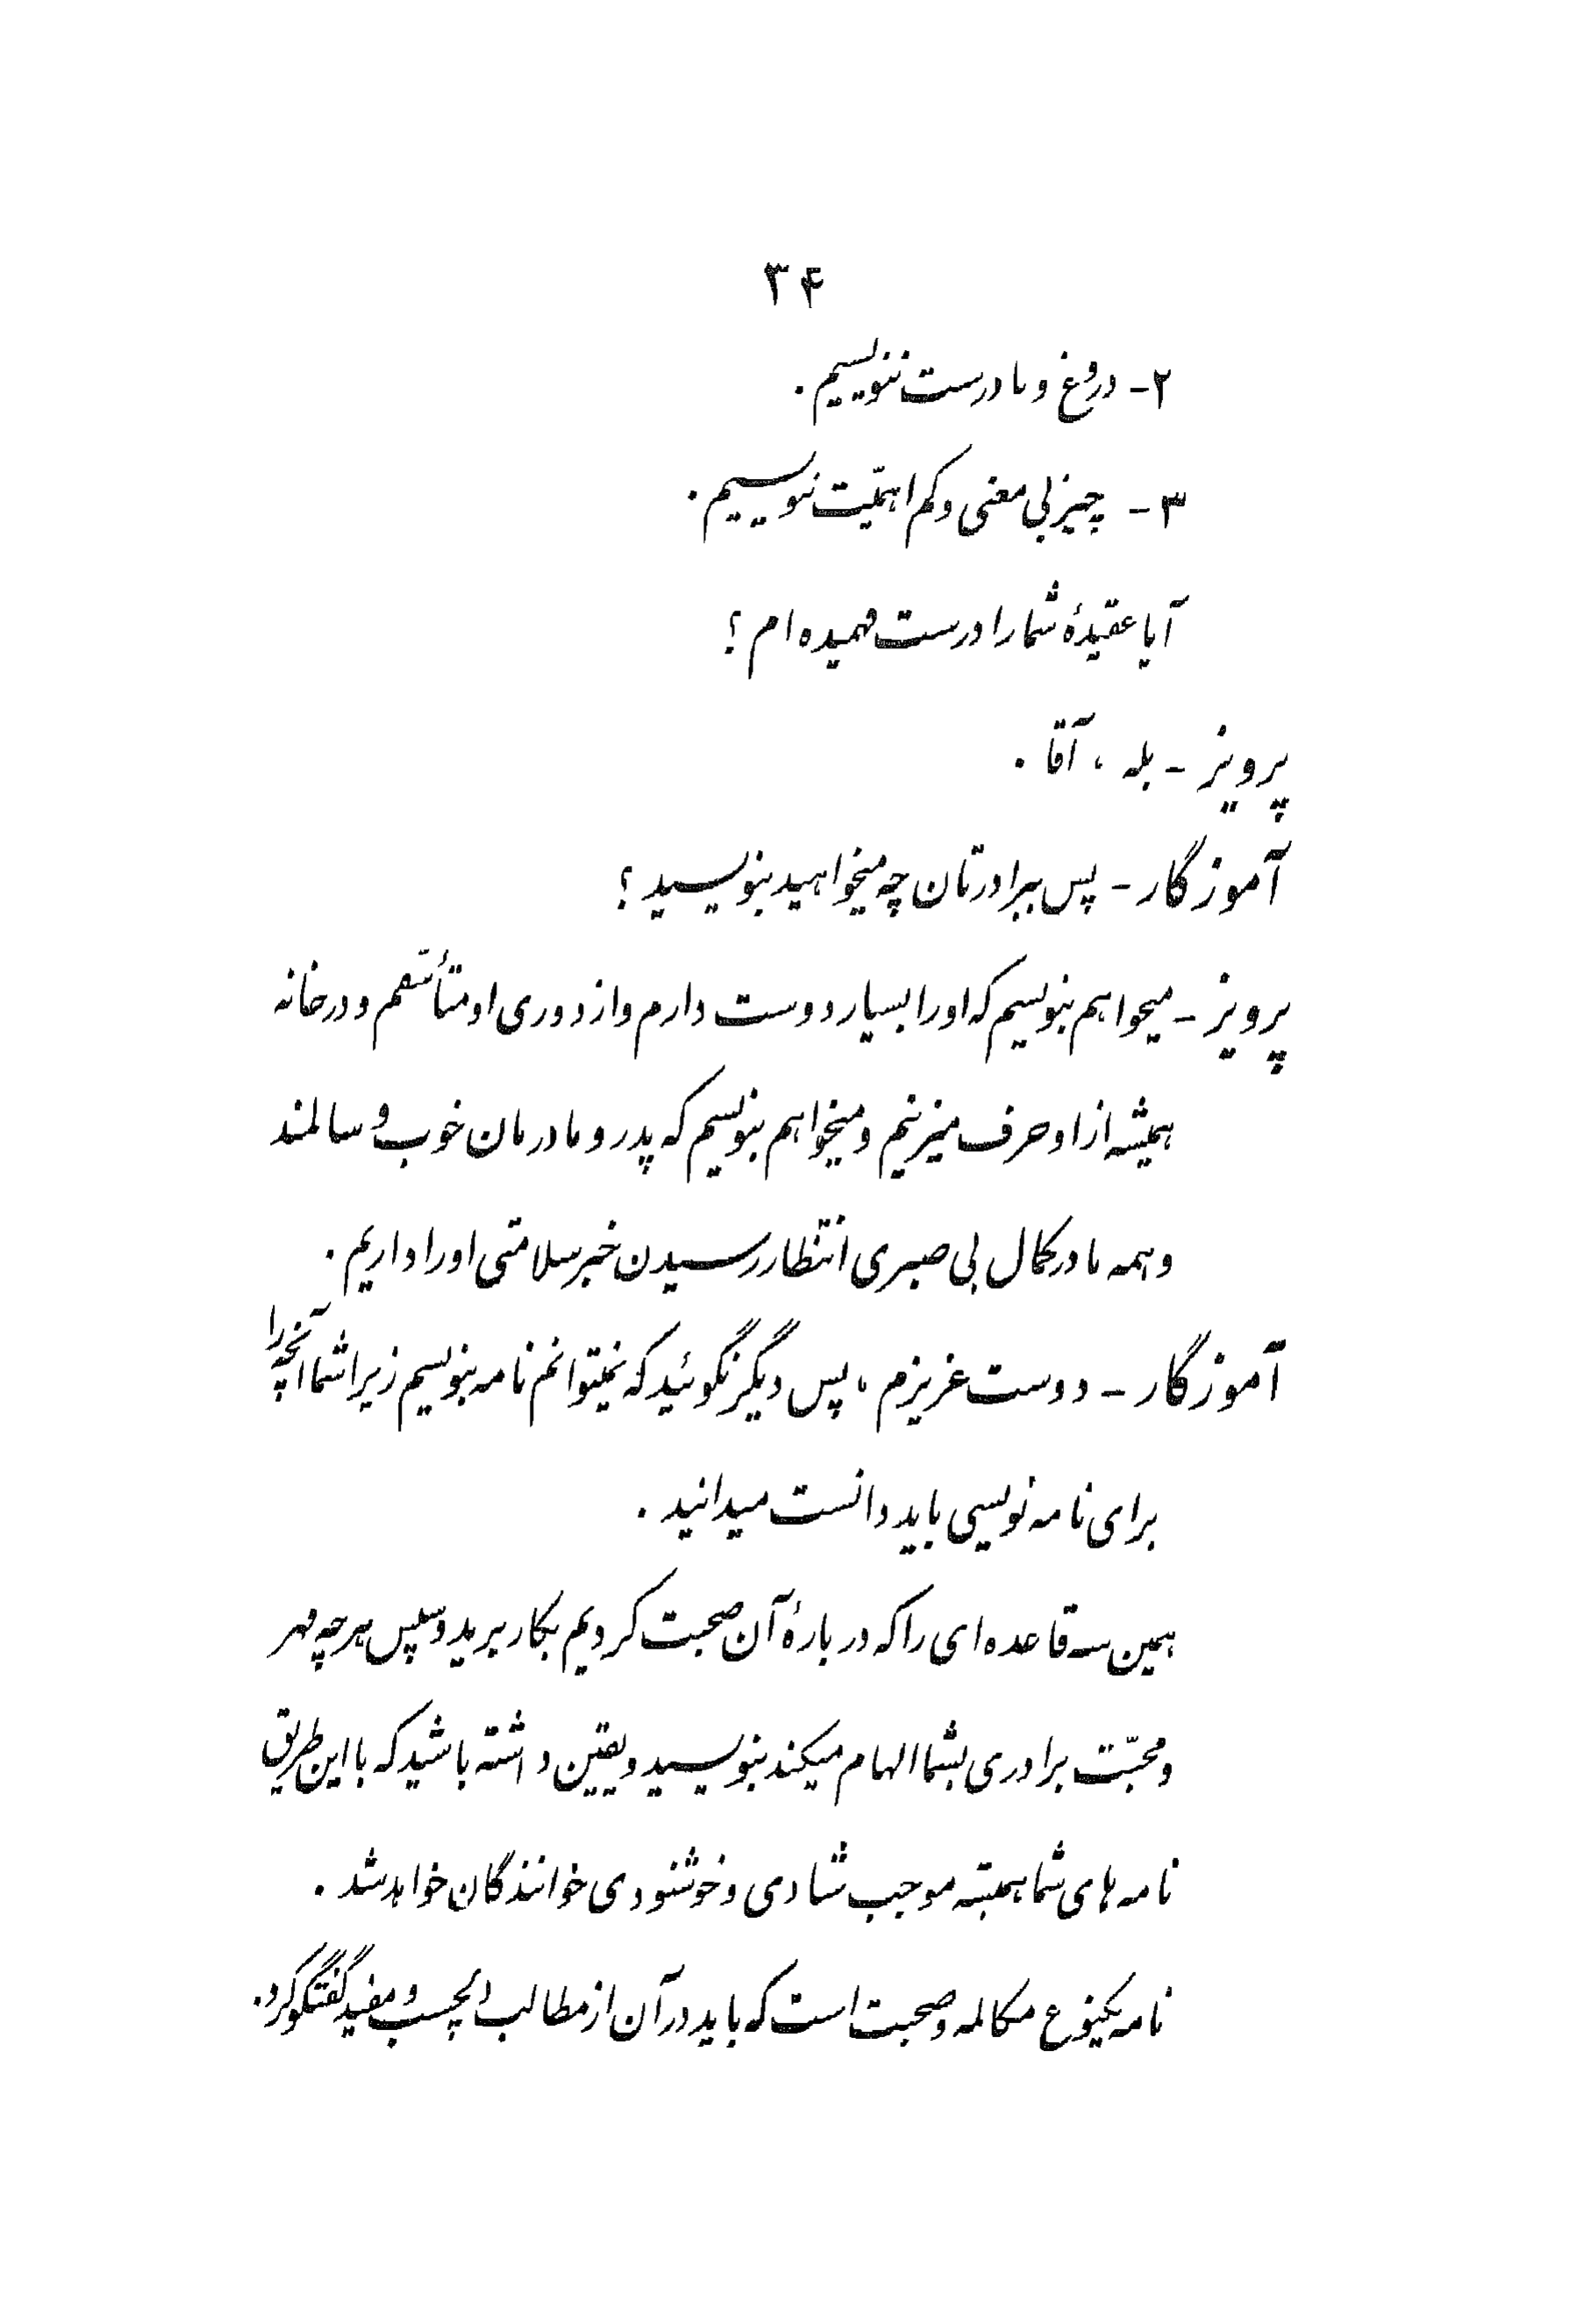 ۳۴
۲- دروغ و نادرست ننویسیم .
۳- چیز بی معنی و کم اهمیّت ننویسیم .
آیا عقیدهٔ شما را درست فهمیده ام ؟
پرویز - بله ، آقا .
آموزگار - پس ببرادرتان چه میخواهید بنویسید ؟
پرویز - میخواهم بنویسم که او را بسیار دوست دارم و از دوری او متأسّفم و در خانه
همیشه از او حرف میزنیم و میخواهم بنویسم که پدر و مادرمان خوب و سالمند
و همه ما در کمال بی صبری انتظار رسیدن خبر سلامتی او را داریم .
آموزگار - دوست عزیزم ، پس دیگر نگوئید که نمیتوانم نامه بنویسم زیرا شما آنچه را
برای نامه نویسی باید دانست میدانید .
همین سه قاعده ای را که در بارهٔ آن صحبت کردیم بکار برید و سپس هر چه مهر
و محبّت برادری بشما الهام میکند بنویسید و یقین داشته باشید که با این طریق
نامه های شما همیشه موجب شادی و خوشنودی خوانندگان خواهد شد .
نامه یکنوع مکالمه و صحبت است که باید در آن از مطالب دلچسب و مفید گفتگو کرد .